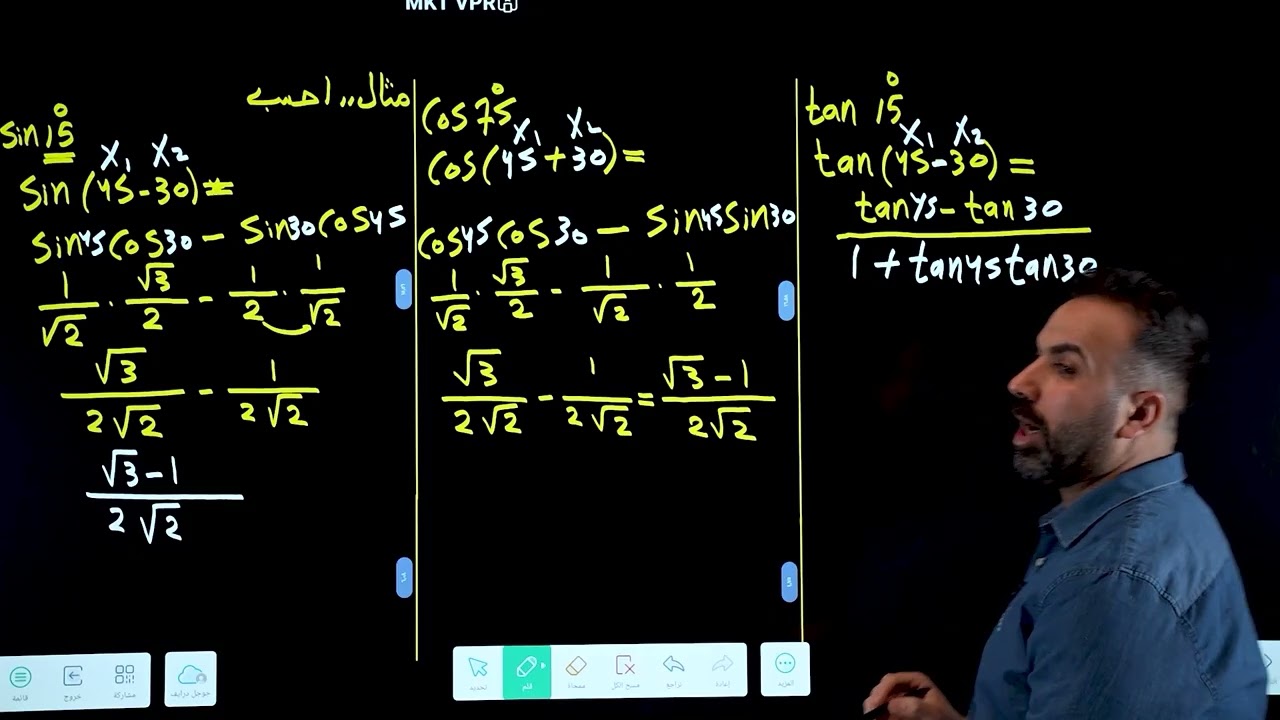 MKT VPR
مثال,, احسب
sin 15°
X₁ X₂
Sin (45 - 30) =
Sin45 Cos30 - Sin30 Cos45
1/√2 · √3/2 - 1/2 · 1/√2
√3/2√2 - 1/2√2
√3 - 1/2√2
Cos 75°
X₁ X₂
Cos (45 + 30) =
Cos45 Cos30 - Sin45 Sin30
1/√2 · √3/2 - 1/√2 · 1/2
√3/2√2 - 1/2√2 = √3 - 1/2√2
tan 15°
X₁ X₂
tan (45 - 30) =
tan45 - tan30
1 + tan45 tan30
قائمة
خروج
مشاركة
جوجل درايف
تحديد
قلم
ممحاة
مسح الكل
تراجع
إعادة
المزيد